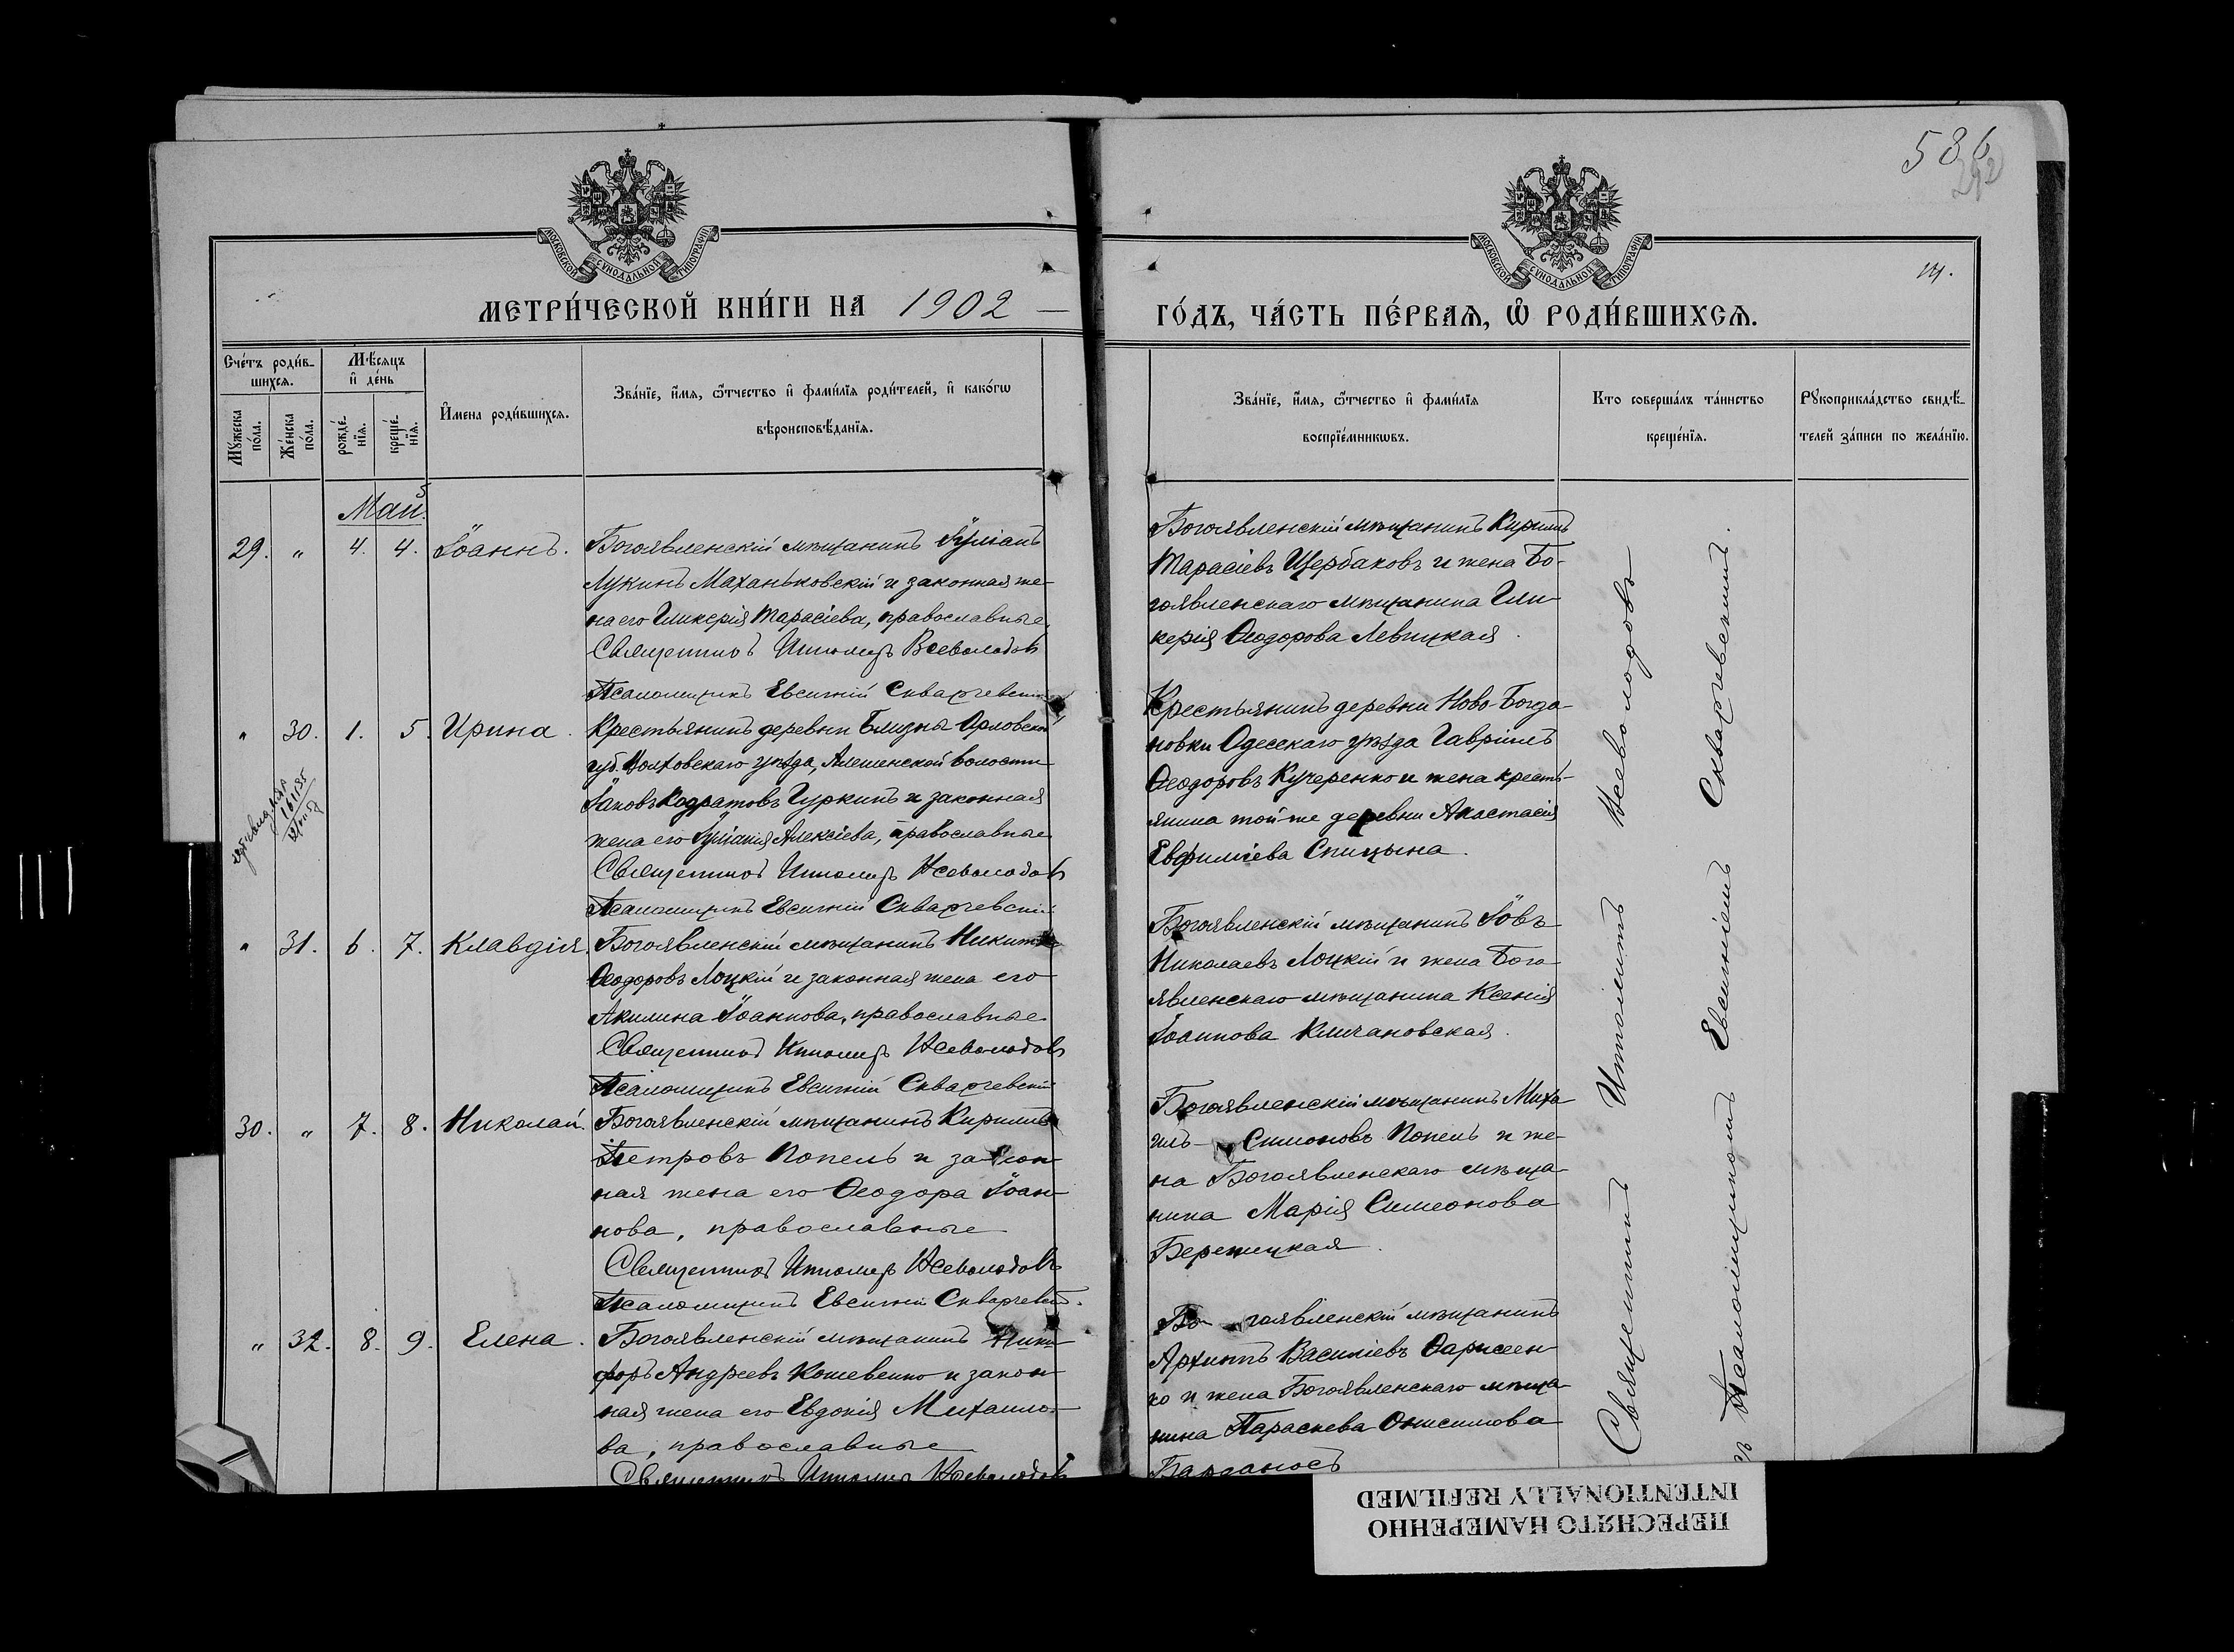 586
292
МОСКОВСКОЙ СУНОДАЛЬНОЙ ТИПОГРАФІИ
МОСКОВСКОЙ СУНОДАЛЬНОЙ ТИПОГРАФІИ
МЕТРИ́ЧЕСКОЙ КНИ́ГИ НА 1902 —
ГО́ДЪ, ЧА́СТЬ ПЕ́РВАѦ, Ѡ҆ РОДИ́ВШИХСѦ.
Сче́тъ роди́в-
шихсѧ.
Мѣ́сѧцъ
и҆ де́нь
Мꙋ́жеска
по́ла.
Же́нска
по́ла.
рожде́-
нїѧ.
креще́-
нїѧ.
И҆мена роди́вшихсѧ.
Зва́нїе, и҆́мѧ, ѻ҆́тчество и҆ фами́лїѧ роди́телей, и҆ како́гѡ
вѣроисповѣ́данїѧ.
Зва́нїе, и҆́мѧ, ѻ҆́тчество и҆ фами́лїѧ
воспрїе́мникѡвъ.
Кто соверша́лъ та́инство
креще́нїѧ.
Рꙋкоприкла́дство свидѣ́-
телей за́писи по жела́нїю.
Май.
29. " 4. 4. Іоаннъ.
Богоявленскій мѣщанинъ Іуліанъ
Лукинъ Маханьковскій и законная же-
на его Гликерія Тарасіева, православные.
Священникъ Ипполитъ Всеволодовъ
Псаломщикъ Евсигній Скваргевскій
Богоявленскій мѣщанинъ Кириллъ
Тарасіевъ Щербаковъ и жена Бо-
гоявленскаго мѣщанина Гли-
керія Ѳеодорова Левицкая.
" 30. 1. 5. Ирина.
Крестьянинъ деревни Близны Орловской
губ. Болховскаго уѣзда, Алешенской волости
Іаковъ Кодратовъ Гуркинъ и законная
жена его Іуліанія Алексіева, православные
Священникъ Ипполитъ Всеволодовъ
Псаломщикъ Евсигній Скваргевскій
Крестьянинъ деревни Ново-Богда-
новки Одесскаго уѣзда Гавріилъ
Ѳеодоровъ Кучеренко и жена кресть-
янина той-же деревни Анастасія
Евфиміева Спицына.
" 31. 6. 7. Клавдія.
Богоявленскій мѣщанинъ Никита
Ѳеодоровъ Лоцкій и законная жена его
Акилина Іоаннова, православные.
Священникъ Ипполитъ Всеволодовъ
Псаломщикъ Евсигній Скваргевскій
Богоявленскій мѣщанинъ Іовъ
Николаевъ Лоцкій и жена Бого-
явленскаго мѣщанина Ксенія
Іоаннова Климановская.
30. " 7. 8. Николай.
Богоявленскій мѣщанинъ Кириллъ
Петровъ Попель и закон-
ная жена его Ѳеодора Іоан-
нова, православные
Священникъ Ипполитъ Всеволодовъ
Псаломщикъ Евсигній Скваргевскій.
Богоявленскій мѣщанинъ Миха-
илъ Симоновъ Попель и же-
на Богоявленскаго мѣща-
нина Марія Симеонова
Бережецкая.
" 32. 8. 9. Елена.
Богоявленскій мѣщанинъ Ники-
форъ Андреевъ Кошевенко и закон-
ная жена его Евдокія Михаило-
ва, православные
Священникъ Ипполитъ Всеволодовъ
Богоявленскій мѣщанинъ
Архиппъ Василіевъ Ѳарисеен-
ко и жена Богоявленскаго мѣща-
нина Параскева Онисимова
Барданосъ
Священникъ Ипполитъ Всеволодовъ
съ Псаломщикомъ Евсигніемъ Скваргевскимъ.
ПЕРЕСНЯТО НАМЕРЕННО
INTENTIONALLY REFILMED